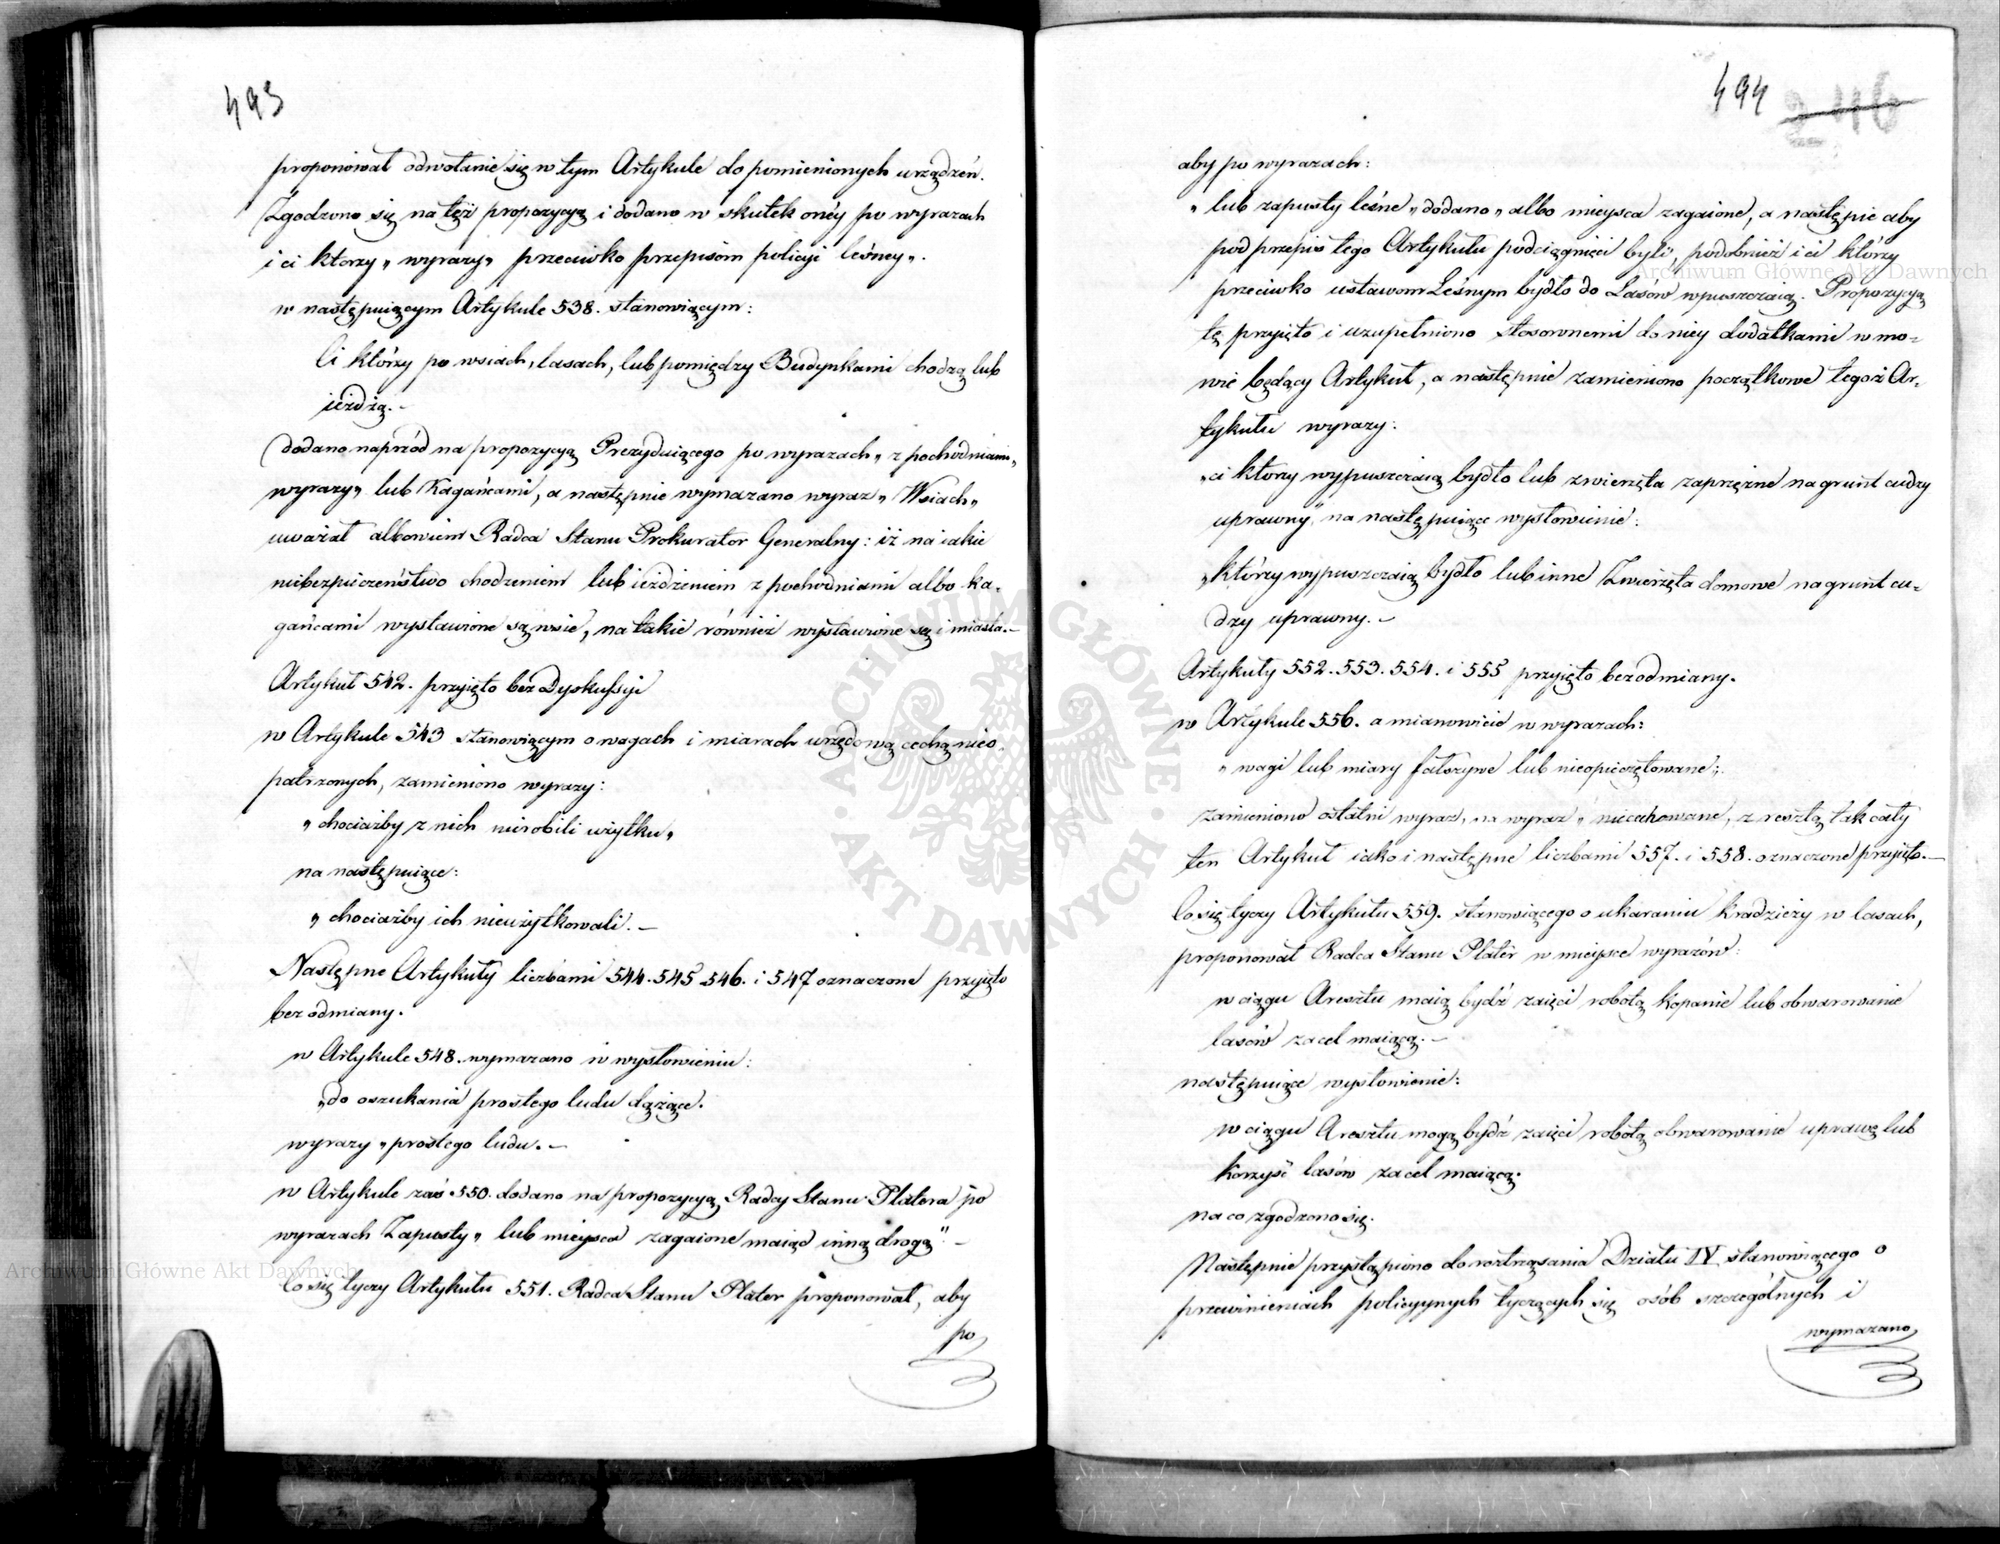 493
proponował odwołanie się w tym Artykule do pomienionych urządzeń.
Zgodzono się na tęż propozycyą i dodano w skutek onéy po wyrazach
i ci którzy „ wyrazy „ przeciwko przepisom policyi leśney „.
w następuiącym Artykule 538. stanowiącym:
Ci którzy po wsiach, lasach, lub pomiędzy Budynkami chodzą lub
ieżdżą. –
dodano naprzód na propozycyą Prezyduiącego po wyrazach „ z pochodniami „
wyrazy „ lub Kagańcami, a następnie wymazano wyraz „ Wsiach „
uważał albowiem Radca Stanu Prokurator Generalny: iż na iakie
niebezpieczeństwo chodzeniem lub ieżdżeniem z pochodniami albo ka-
gańcami wystawione są wsie, na takie również wystawione są i miasta. –
Artykuł 542. przyięto bez Dyskussyi
w Artykule 543 stanowiącym o wagach i miarach urzędową cechą nieo-
patrzonych, zamieniono wyrazy:
„ chociażby z nich nierobili użytku „
na następuiące:
„ chociażby ich nieużytkowali. –
Następne Artykuły liczbami 544. 545 546. i 547 oznaczone przyięto
bez odmiany.
w Artykule 548. wymazano w wysłowieniu:
„do oszukania prostego ludu dążące.
wyrazy „prostego ludu. –
w Artykule zaś 550. dodano na propozycyą Radcy Stanu Platera po
wyrazach Zapusty „ lub mieysca zagaione maiąc inną drogę" –
Co się tyczy Artykułu 551. Radca Stanu Plater proponował, aby
po
494
246
aby po wyrazach:
„ lub zapusty leśne „ dodano „ albo mieysca zagaione, a następnie aby
pod przepis tego Artykułu podciągnięci byli, podobnież i ci którzy
przeciwko ustawom Leśnym bydło do Lasów wpuszczaią. Propozycyą
tę przyięto i uzupełniono stosownemi do niey dodatkami w mo-
wie będący Artykuł, a następnie zamieniono początkowe tegoż Ar-
tykułu wyrazy:
„ci którzy wypuszczaią bydło lub zwierzęta zaprzężne na grunt cudzy
uprawny", na następuiące wysłowienie:
„którzy wypuszczaią bydło lub inne Zwierzęta domowe na grunt cu-
dzy uprawny. –
Artykuły 552. 553. 554. i 555 przyięto bez odmiany.
w Artykule 556. a mianowicie w wyrazach:
„ wagi lub miary fałszywe lub nieopieczętowane „.
zamieniono ostatni wyraz, na wyraz „ niecechowane, z resztą tak cały
ten Artykuł iako i następne liczbami 557. i 558. oznaczone przyięto. –
Co się tyczy Artykułu 559. stanowiącego o ukaraniu kradzieży w lasach,
proponował Radca Stanu Plater w mieysce wyrazów:
w ciągu Aresztu maią bydź zaięci robotą kopanie lub obwarowanie
lasów za cel maiącą. –
następuiące wysłowienie:
w ciągu Aresztu mogą bydź zaięci robotą obwarowanie uprawę lub
korzyść lasów za cel maiącą.
na co zgodzono się.
Następnie przystąpiono do roztrząsania Działu IV stanowiącego o
przewinieniach policyynych tyczących się osób szczególnych i
wymazano
ARCHIWUM GŁÓWNE AKT DAWNYCH
Archiwum Główne Akt Dawnych
Archiwum Główne Akt Dawnych